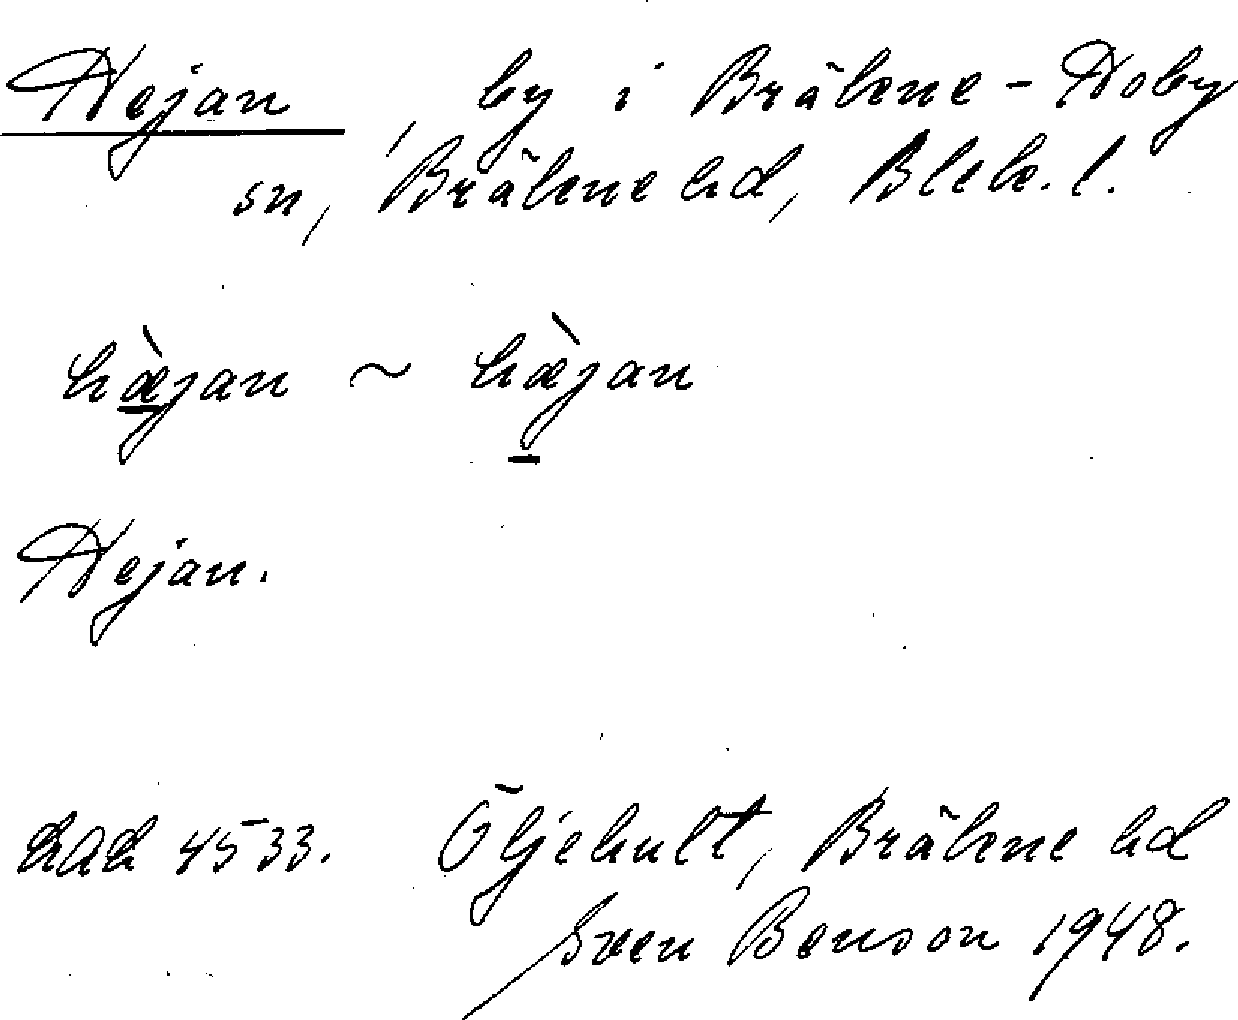 Hejan, by i Bräkne-Hoby
sn, Bräkne hd, Blek. l.
hæ̀jan ~ hæ̀jan
Hejan.
LAL 4533. Öljehult, Bräkne hd
Sven Benson 1948.